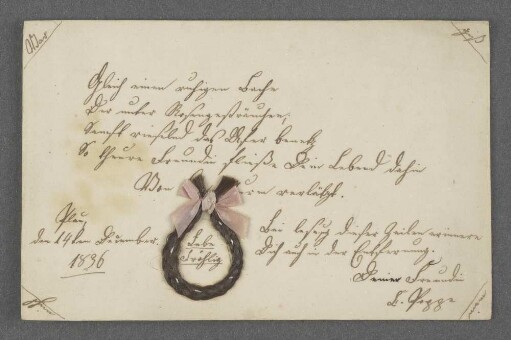 Gleich einem ruhigen Bache
Der unter Rosengesträuchen,
Sanft rieselnd das Ufer benetz
So theure Freundin fließe Dein Leben dahin
Von
Plau
den 14ten Dezember.
1836
Lebe
Fröhlig
Bei lesung dieser Zeilen erinnere
Dich auch in der Entfernung.
Deiner Freundin
Poppe